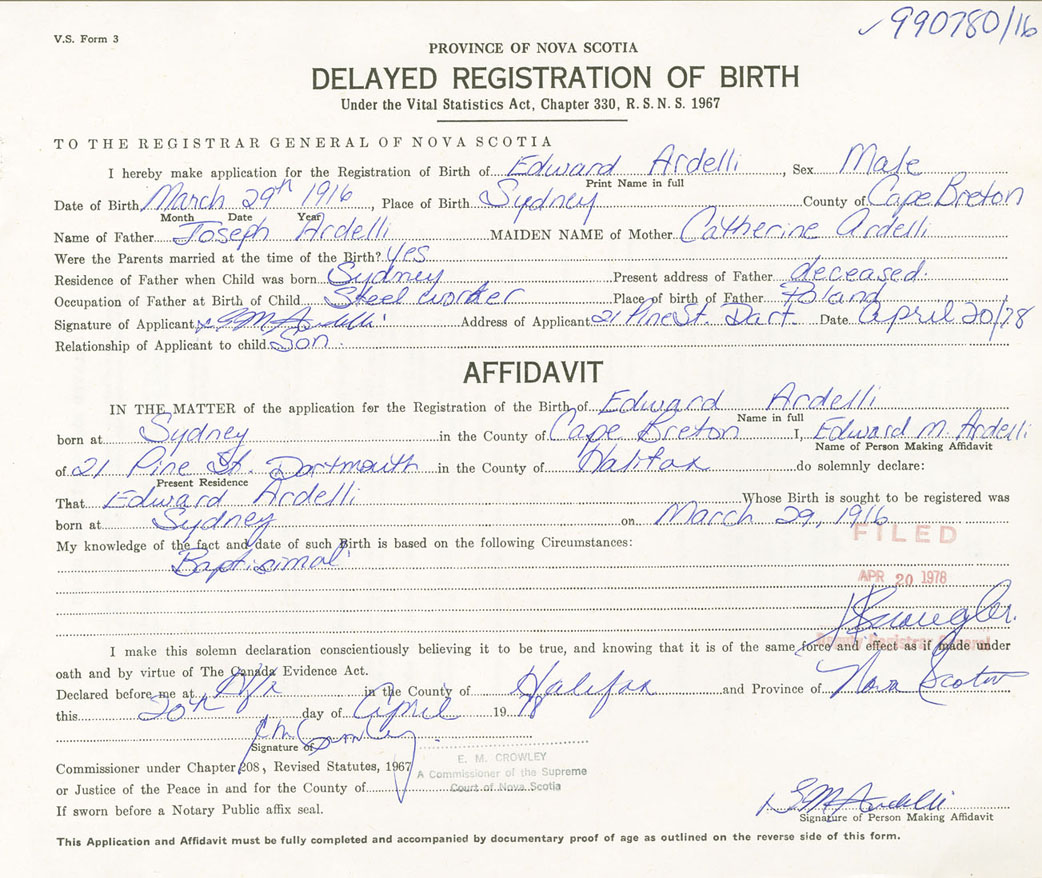 V.S. Form 3
✓990780/16
PROVINCE OF NOVA SCOTIA
DELAYED REGISTRATION OF BIRTH
Under the Vital Statistics Act, Chapter 330, R.S.N.S. 1967
TO THE REGISTRAR GENERAL OF NOVA SCOTIA
I hereby make application for the Registration of Birth of Edward Ardelli, Sex Male
Print Name in full
Date of Birth March 29th 1916, Place of Birth Sydney County of Cape Breton
Month Date Year
Name of Father Joseph Ardelli MAIDEN NAME of Mother Catherine Ardelli
Were the Parents married at the time of the Birth? Yes
Residence of Father when Child was born Sydney Present address of Father deceased.
Occupation of Father at Birth of Child Steel worker Place of birth of Father Poland
Signature of Applicant x EM Ardelli Address of Applicant 21 Pine St. Dart. Date April 20/78
Relationship of Applicant to child Son
AFFIDAVIT
IN THE MATTER of the application for the Registration of the Birth of Edward Ardelli
Name in full
born at Sydney in the County of Cape Breton I, Edward M. Ardelli
Name of Person Making Affidavit
of 21 Pine St. Dartmouth in the County of Halifax do solemnly declare:
Present Residence
That Edward Ardelli Whose Birth is sought to be registered was
born at Sydney on March 29, 1916
FILED
My knowledge of the fact and date of such Birth is based on the following Circumstances:
Baptisimal
APR 20 1978
Deputy Registrar General
I make this solemn declaration conscientiously believing it to be true, and knowing that it is of the same force and effect as if made under
oath and by virtue of The Canada Evidence Act.
Declared before me at Hfx in the County of Halifax and Province of Nova Scotia
this 20th day of April 1978
Signature of
E. M. CROWLEY
Commissioner under Chapter 208, Revised Statutes, 1967
A Commissioner of the Supreme
Court of Nova Scotia
or Justice of the Peace in and for the County of
x EM Ardelli
If sworn before a Notary Public affix seal.
Signature of Person Making Affidavit
This Application and Affidavit must be fully completed and accompanied by documentary proof of age as outlined on the reverse side of this form.